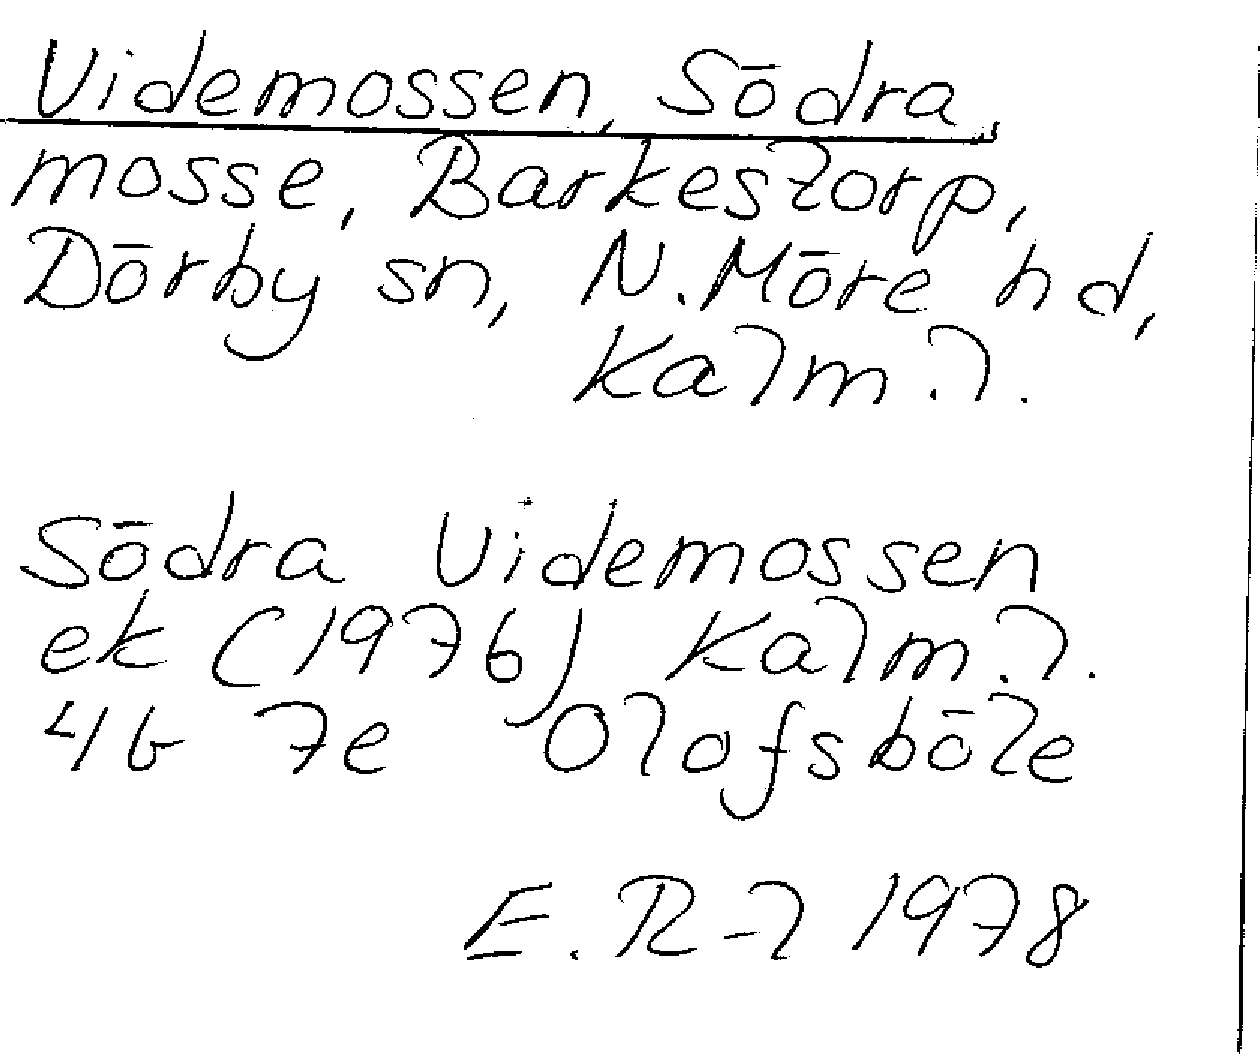 Videmossen, Södra,
mosse, Barkestorp,
Dörby sn, N. Möre hd,
Kalm.l.
Södra Videmossen
ek (1976) Kalm.l.
4G 7e Olofsböle
E. R-l 1978